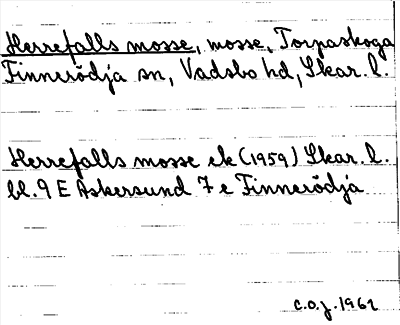 Herrefalls mosse, mosse, Torpaskoga
Finnerödja sn, Vadsbo hd, Skar. l.
Herrefalls mosse ek (1959) Skar. l.
bl. 9 E Askersund 7 e Finnerödja
C.O.J. 1962